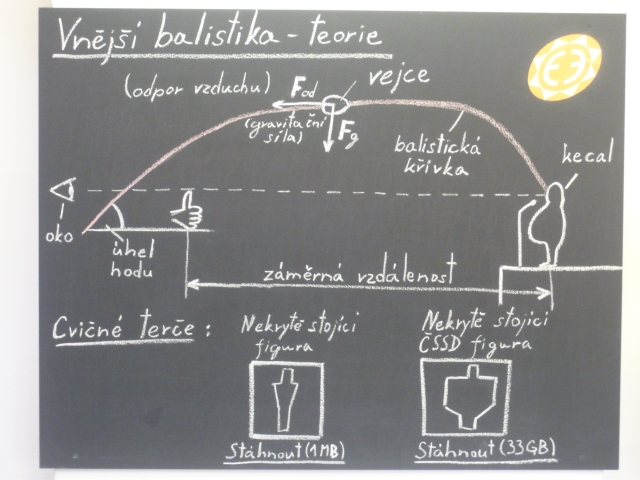 Vnější balistika - teorie
(odpor vzduchu)
Fod
vejce
(gravitační
síla)
Fg
balistická
křivka
kecal
oko
úhel
hodu
záměrná vzdálenost
Cvičné terče:
Nekrytě stojící
figura
Nekrytě stojící
ČSSD figura
Stáhnout (1MB)
Stáhnout (33GB)